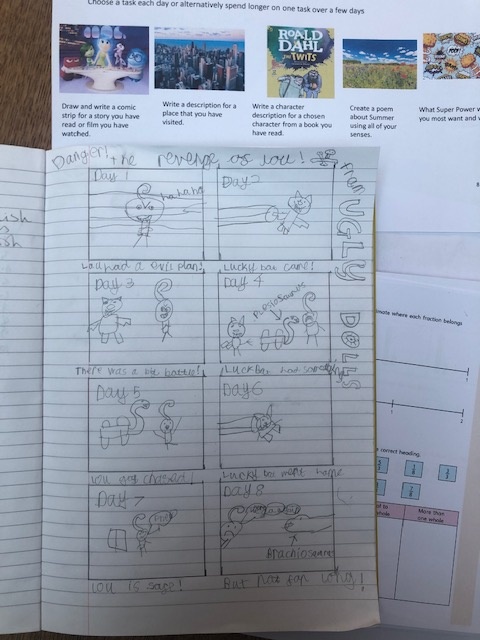 Choose a task each day or alternatively spend longer on one task over a few days
ROALD
DAHL
THE TWITS
Draw and write a comic
strip for a story you have
read or film you have
watched.
Write a description for a
place that you have
visited.
Write a character
description for a chosen
character from a book you
have read.
Create a poem
about Summer
using all of your
senses.
What Super Power w
you most want and w
Danger! the revenge of Lou!
from
UGLY
DOLLS
Day 1
hahaha
Lou had a evil plan!
Day 2
Lucky bat came!
Day 3
There was a big battle!
Day 4
Plesiosaurus
Lucky bat had something
Day 5
Lou got chased!
Day 6
Lucky bat went home
Day 7
Lou is safe!
Day 8
But not for long!
imate where each fraction belongs
1
2
correct heading.
whole
More than
one whole